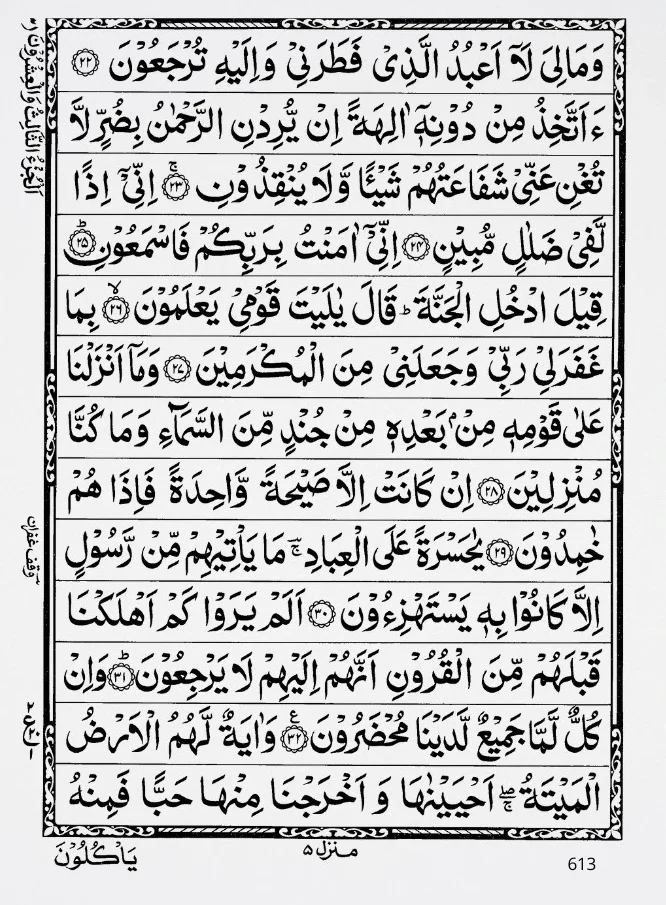 وَمَالِیَ لَآ اَعْبُدُ الَّذِیْ فَطَرَنِیْ وَاِلَیْهِ تُرْجَعُوْنَ ﴿۲۲﴾
ءَاَتَّخِذُ مِنْ دُوْنِهٖۤ اٰلِهَةً اِنْ یُّرِدْنِ الرَّحْمٰنُ بِضُرٍّ لَّا
تُغْنِ عَنِّیْ شَفَاعَتُهُمْ شَیْـًٔا وَّلَا یُنْقِذُوْنِ ﴿۲۳﴾ۚ اِنِّیْۤ اِذًا
لَّفِیْ ضَلٰلٍ مُّبِیْنٍ ﴿۲۴﴾ اِنِّیْۤ اٰمَنْتُ بِرَبِّكُمْ فَاسْمَعُوْنِ ﴿۲۵﴾ؕ
قِیْلَ ادْخُلِ الْجَنَّةَ ؕ قَالَ یٰلَیْتَ قَوْمِیْ یَعْلَمُوْنَ ﴿۲۶﴾ۙ بِمَا
غَفَرَلِیْ رَبِّیْ وَجَعَلَنِیْ مِنَ الْمُكْرَمِیْنَ ﴿۲۷﴾ وَمَاۤ اَنْزَلْنَا
عَلٰی قَوْمِهٖ مِنْۢ بَعْدِهٖ مِنْ جُنْدٍ مِّنَ السَّمَآءِ وَمَا كُنَّا
مُنْزِلِیْنَ ﴿۲۸﴾ اِنْ كَانَتْ اِلَّا صَیْحَةً وَّاحِدَةً فَاِذَا هُمْ
خٰمِدُوْنَ ﴿۲۹﴾ یٰحَسْرَةً عَلَی الْعِبَادِ ۚ مَا یَاْتِیْهِمْ مِّنْ رَّسُوْلٍ
اِلَّا كَانُوْا بِهٖ یَسْتَهْزِءُوْنَ ﴿۳۰﴾ اَلَمْ یَرَوْا كَمْ اَهْلَكْنَا
قَبْلَهُمْ مِّنَ الْقُرُوْنِ اَنَّهُمْ اِلَیْهِمْ لَا یَرْجِعُوْنَ ﴿۳۱﴾ؕ وَاِنْ
كُلٌّ لَّمَّا جَمِیْعٌ لَّدَیْنَا مُحْضَرُوْنَ ﴿۳۲﴾ۧ وَاٰیَةٌ لَّهُمُ الْاَرْضُ
الْمَیْتَةُ ۖۚ اَحْیَیْنٰهَا وَ اَخْرَجْنَا مِنْهَا حَبًّا فَمِنْهُ
یَاْكُلُوْنَ
منزل ۵
613
اَلْجُزْءُ الثَّالِثُ وَالْعِشْرُوْنَ
وقف غفران